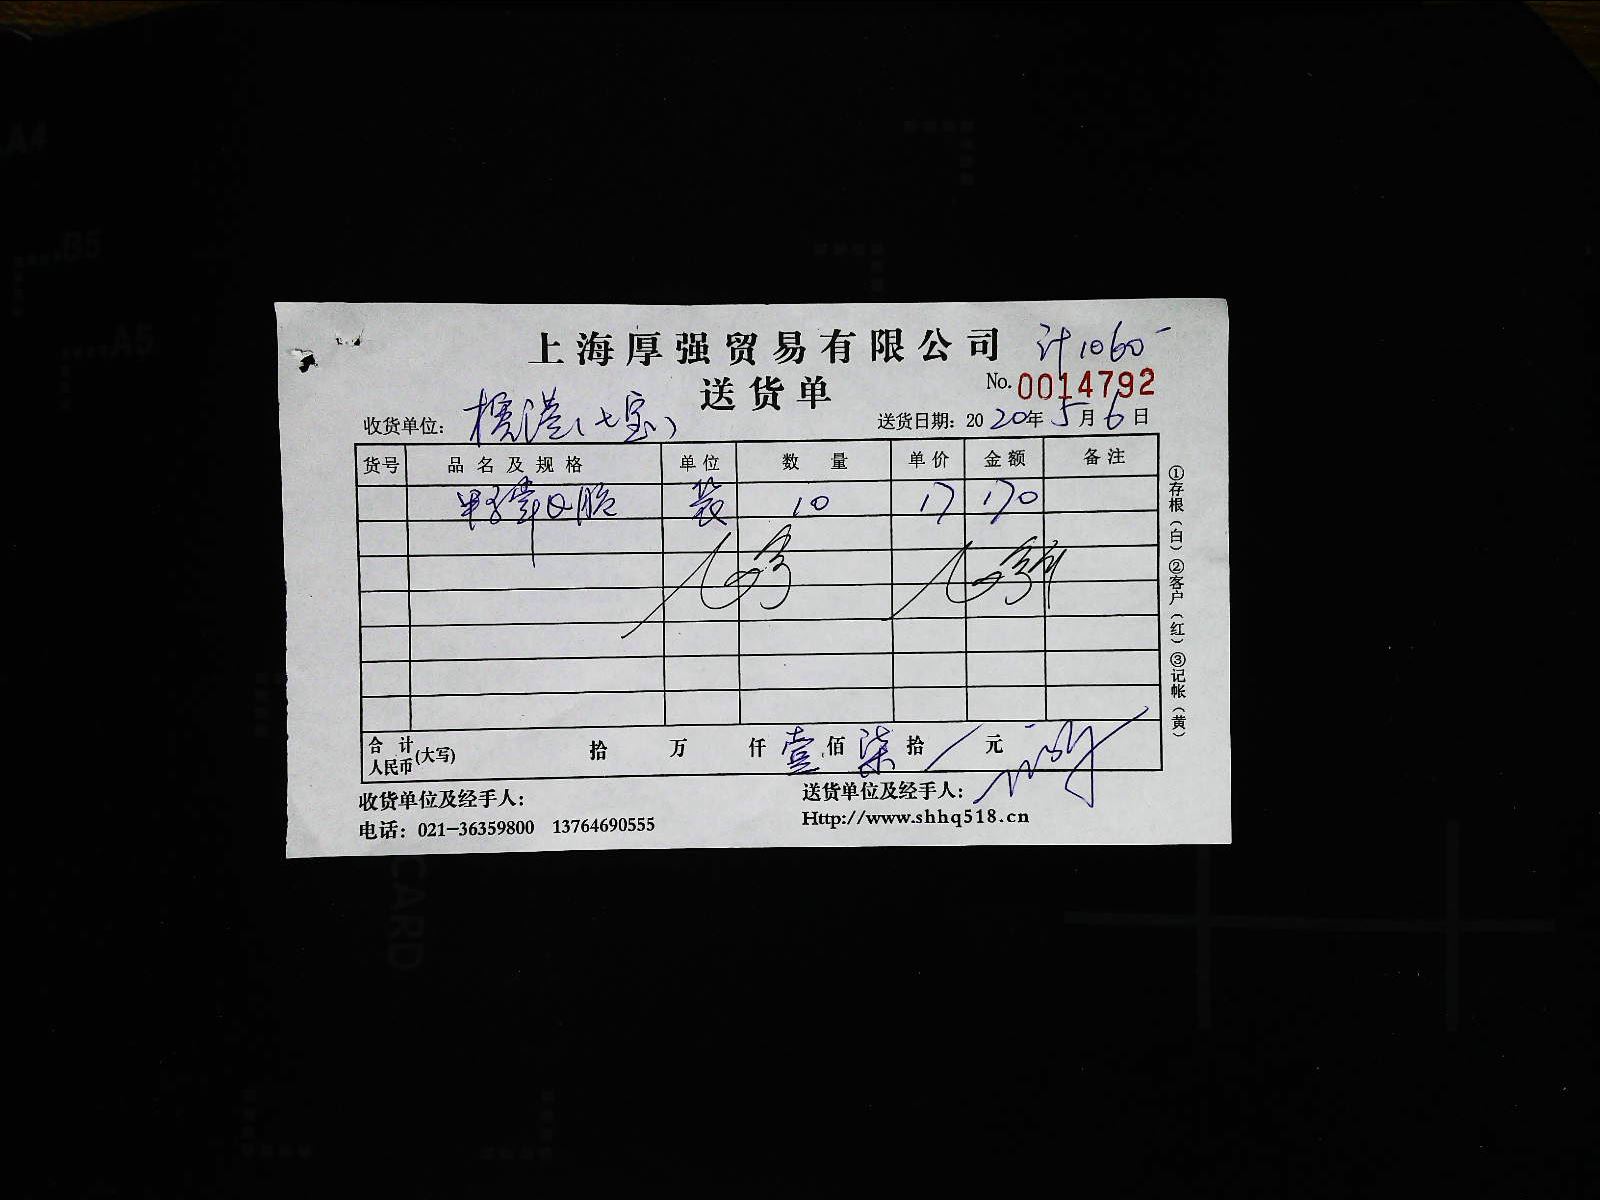 上海厚强贸易有限公司 计1060-
送货单 No. 0014792
收货单位: 港(七宝) 送货日期: 2020年5月6日
货号 品名及规格 单位 数量 单价 金额 备注
装 10 17 170
合计人民币(大写) 拾 万 仟 壹佰 柒拾 / 元
收货单位及经手人: 送货单位及经手人:
电话: 021-36359800 13764690555 Http://www.shhq518.cn
①存根(白)②客户(红)③记帐(黄)
A4
B5
A5
CARD